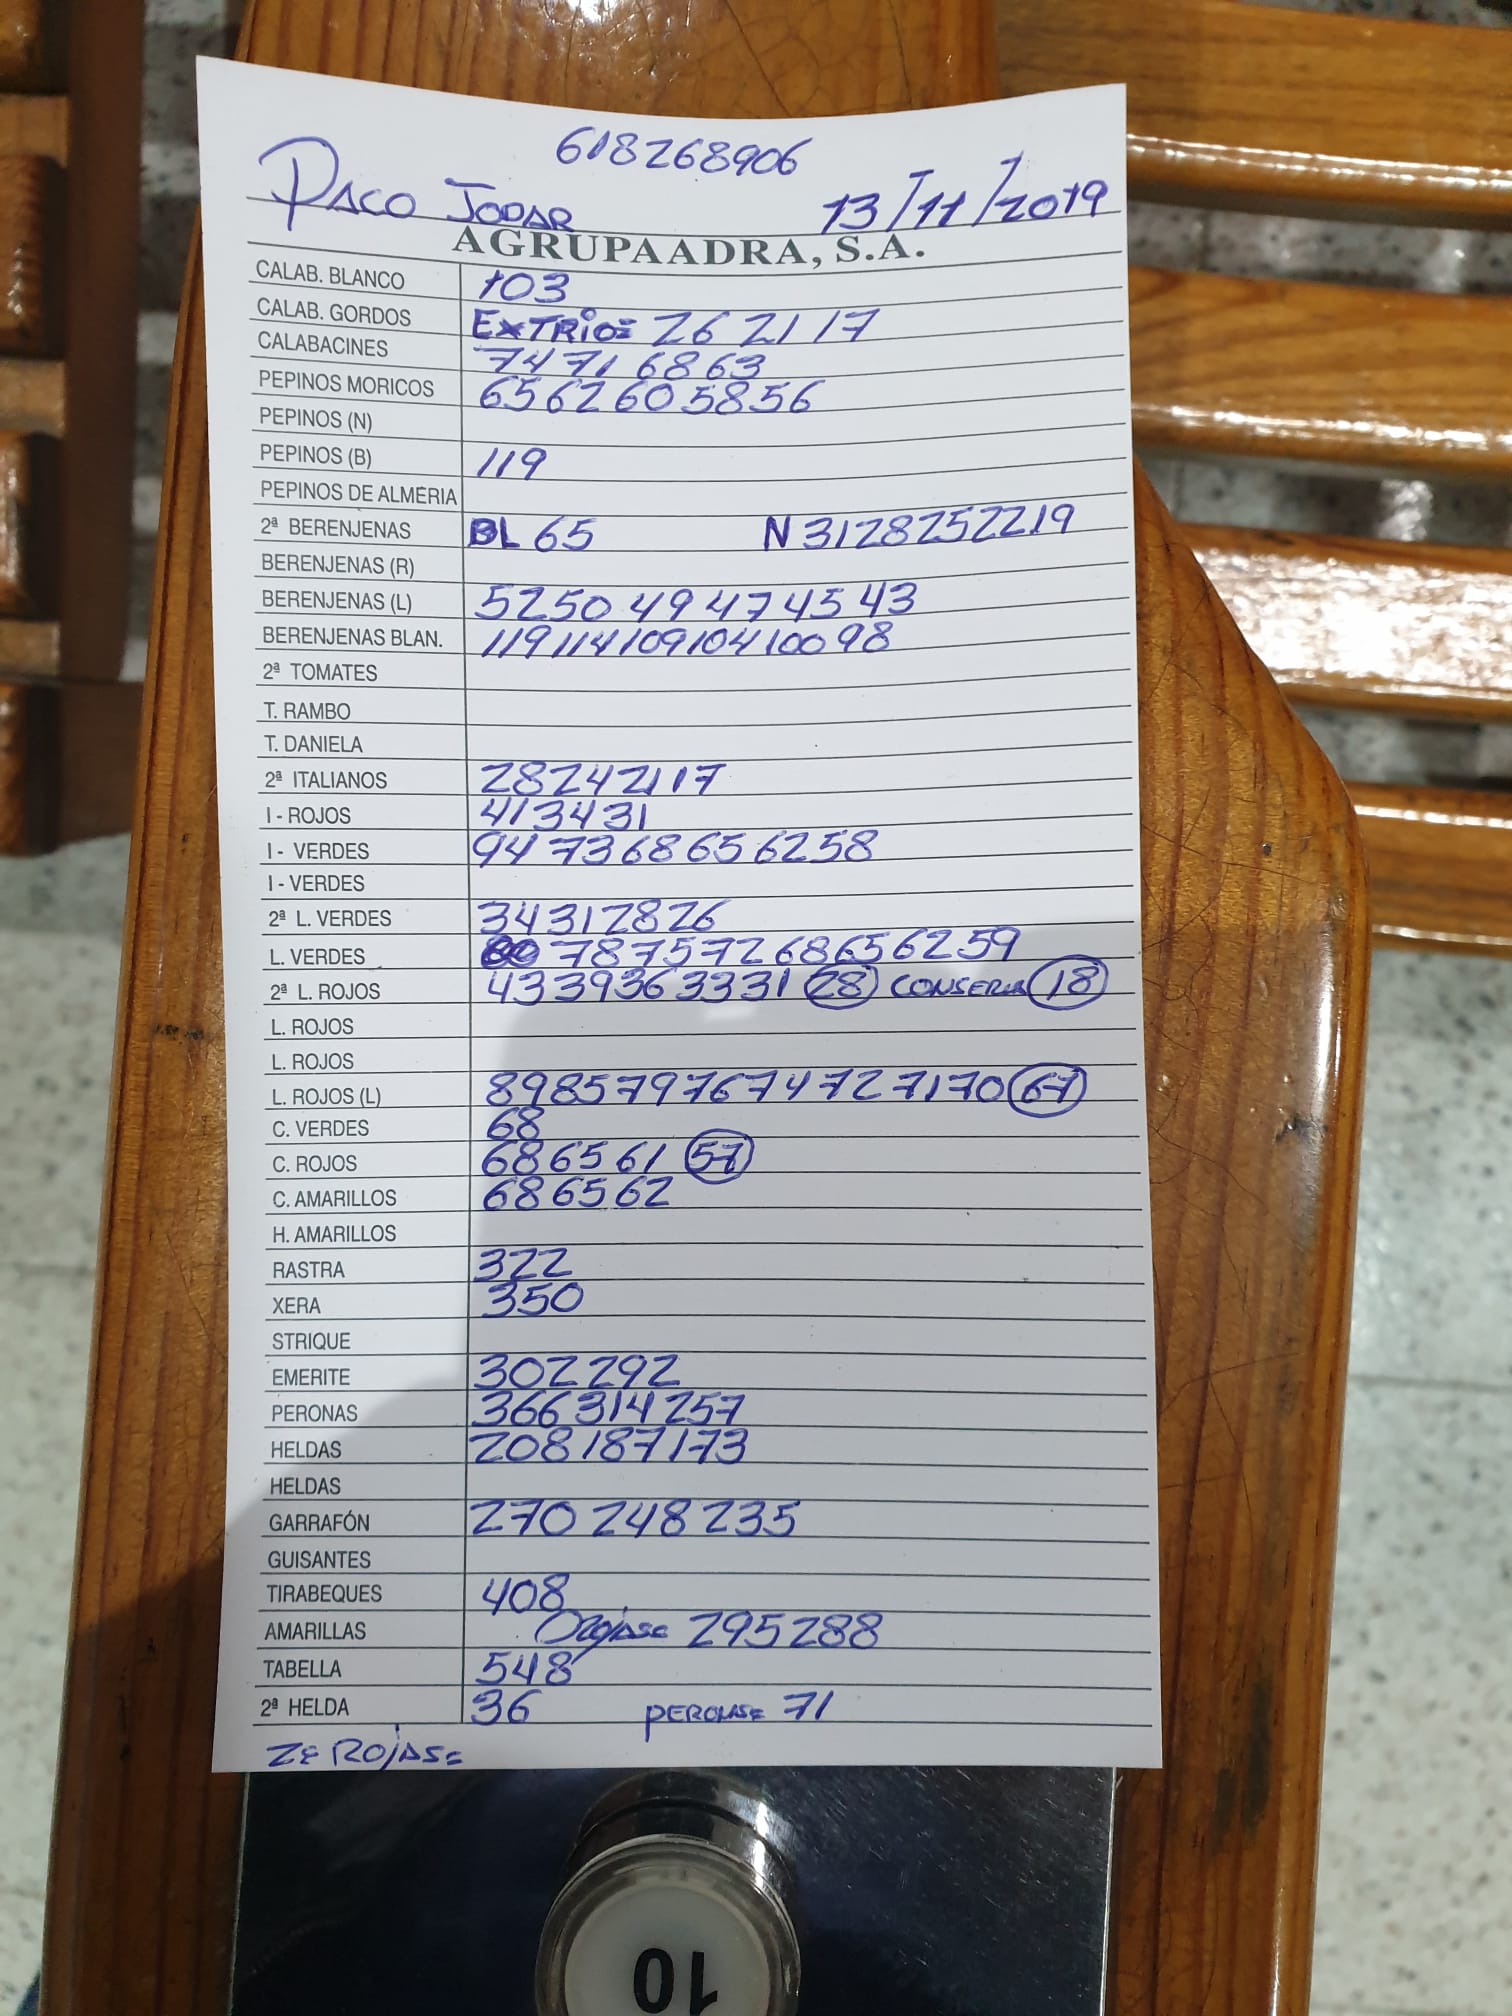 618268906
PACO JODAR 13/11/2019
AGRUPAADRA, S.A.
CALAB. BLANCO 103
CALAB. GORDOS EXTRIO= 26 21 17
CALABACINES 74 71 68 63
PEPINOS MORICOS 65 62 60 58 56
PEPINOS (N)
PEPINOS (B) 119
PEPINOS DE ALMERIA
2ª BERENJENAS BL 65 N 31 28 25 22 19
BERENJENAS (R)
BERENJENAS (L) 52 50 49 47 45 43
BERENJENAS BLAN. 119 114 109 104 100 98
2ª TOMATES
T. RAMBO
T. DANIELA
2ª ITALIANOS 28 24 21 17
I - ROJOS 41 34 31
I - VERDES 94 73 68 65 62 58
I - VERDES
2ª L. VERDES 34 31 28 26
L. VERDES 78 75 72 68 65 62 59
2ª L. ROJOS 43 39 36 33 31 28 CONSERVA 18
L. ROJOS
L. ROJOS
L. ROJOS (L) 89 85 79 76 74 72 71 70 67
C. VERDES 68
C. ROJOS 68 65 61 57
C. AMARILLOS 68 65 62
H. AMARILLOS
RASTRA 322
XERA 350
STRIQUE
EMERITE 302 292
PERONAS 366 314 257
HELDAS 208 187 173
HELDAS
GARRAFÓN 270 248 235
GUISANTES
TIRABEQUES 408
AMARILLAS 295 288
TABELLA 548
2ª HELDA 36 PERONAS= 71
ROJAS=
10